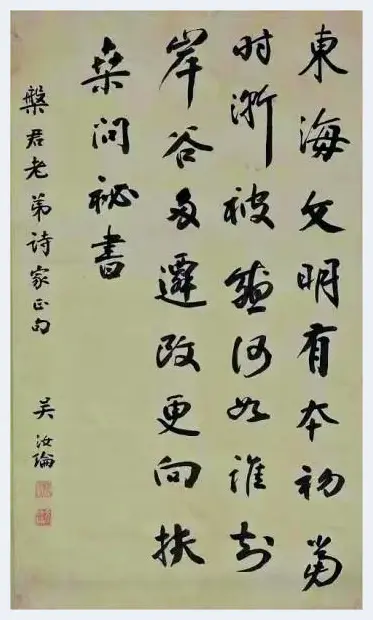 東海文明有本初當
时漸被盛何如誰知
岸谷多遷改更向扶
桑问祕書
槃君老弟詩家正句
吴汝綸